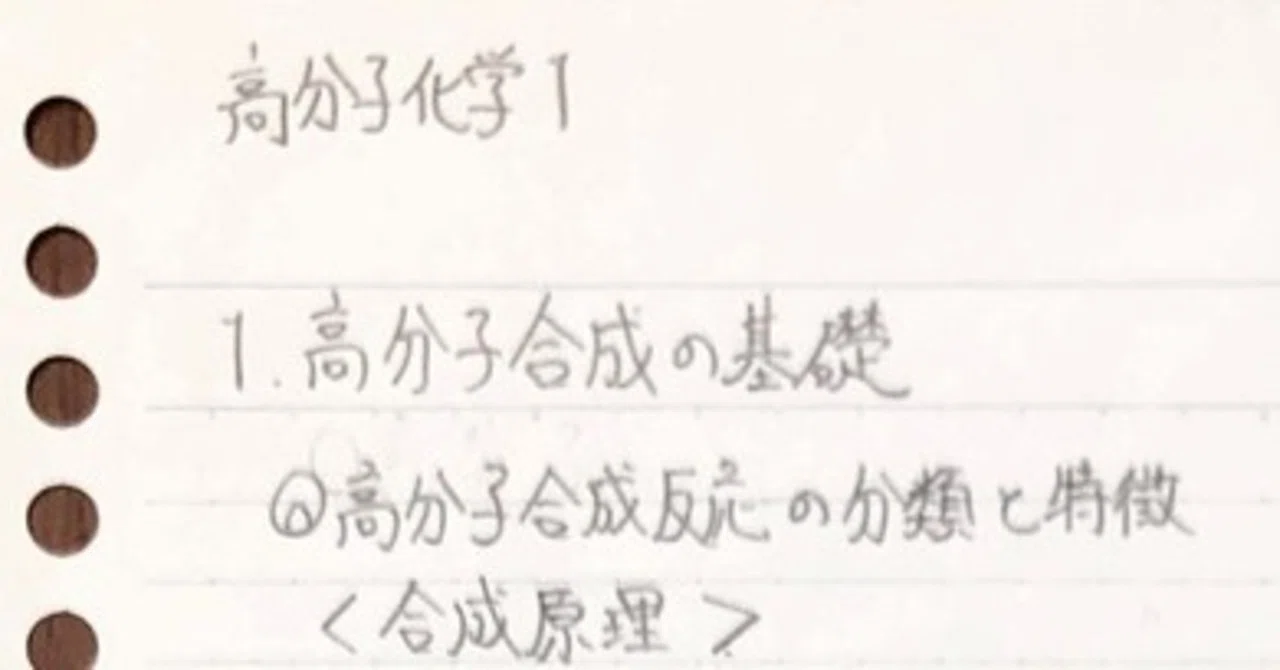 高分子化学1
1.高分子合成の基礎
ⓐ高分子合成反応の分類と特徴
<合成原理>